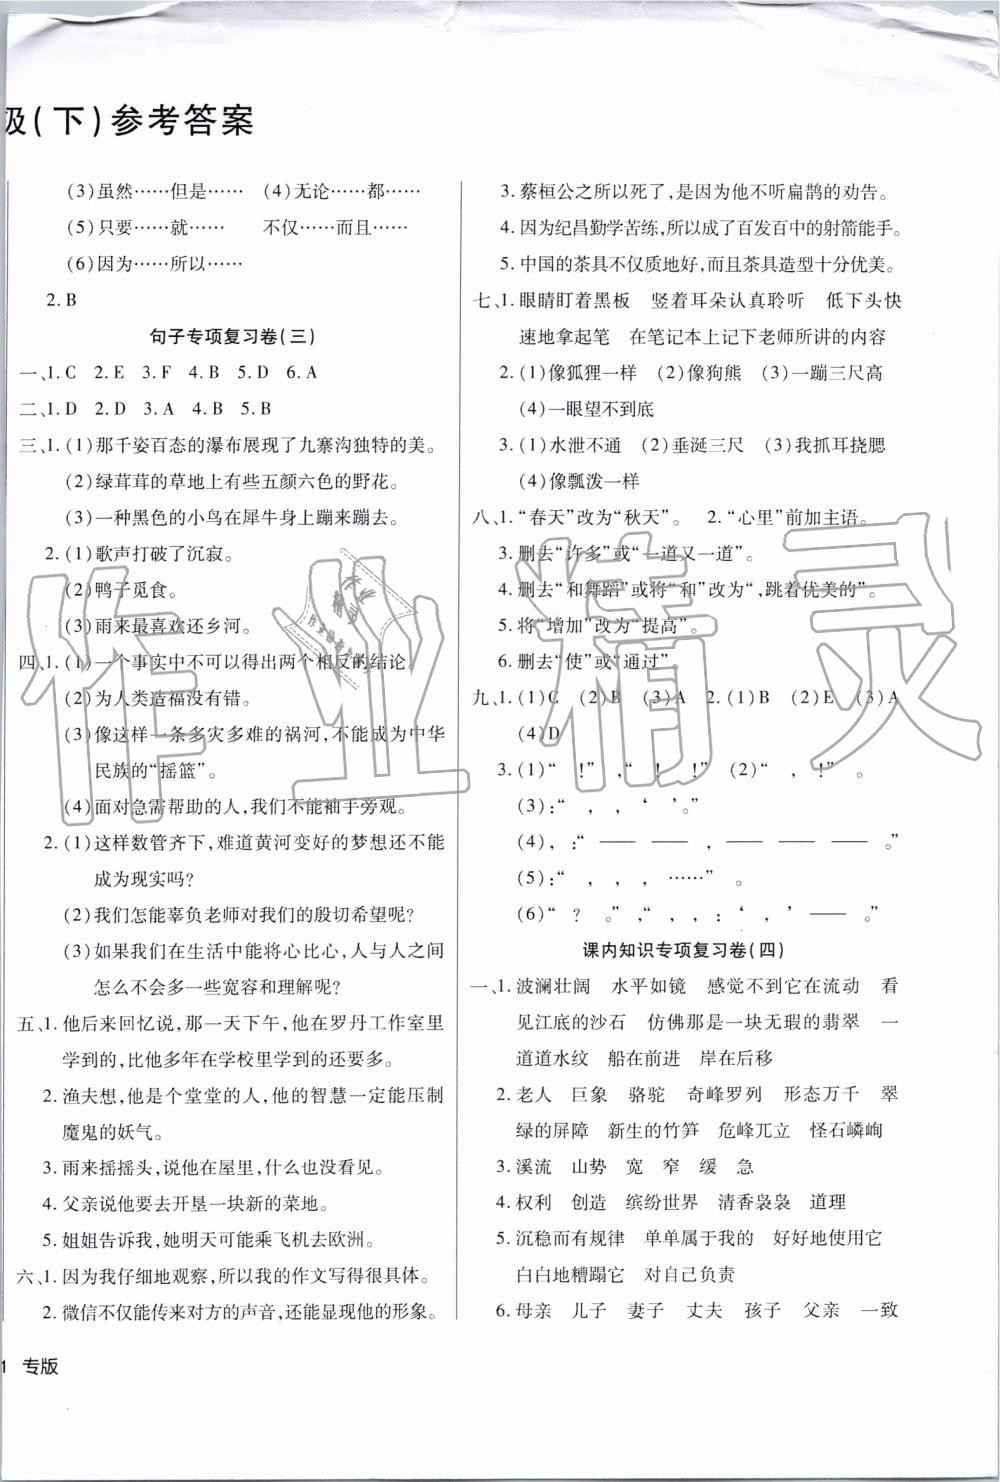 级(下)参考答案
(3)虽然……但是……　(4)无论……都……
(5)只要……就……　不仅……而且……
(6)因为……所以……
2. B
句子专项复习卷(三)
一、1. C　2. E　3. F　4. B　5. D　6. A
二、1. D　2. D　3. A　4. B　5. B
三、1. (1)那千姿百态的瀑布展现了九寨沟独特的美。
(2)绿茸茸的草地上有些五颜六色的野花。
(3)一种黑色的小鸟在犀牛身上蹦来蹦去。
2. (1)歌声打破了沉寂。
(2)鸭子觅食。
(3)雨来最喜欢还乡河。
四、1. (1)一个事实中不可以得出两个相反的结论。
(2)为人类造福没有错。
(3)像这样一条多灾多难的祸河,不能成为中华
民族的“摇篮”。
(4)面对急需帮助的人,我们不能袖手旁观。
2. (1)这样数管齐下,难道黄河变好的梦想还不能
成为现实吗?
(2)我们怎能辜负老师对我们的殷切希望呢?
(3)如果我们在生活中能将心比心,人与人之间
怎么不会多一些宽容和理解呢?
五、1. 他后来回忆说,那一天下午,他在罗丹工作室里
学到的,比他多年在学校里学到的还要多。
2. 渔夫想,他是个堂堂的人,他的智慧一定能压制
魔鬼的妖气。
3. 雨来摇摇头,说他在屋里,什么也没看见。
4. 父亲说他要去开垦一块新的菜地。
5. 姐姐告诉我,她明天可能乘飞机去欧洲。
六、1. 因为我仔细地观察,所以我的作文写得很具体。
2. 微信不仅能传来对方的声音,还能显现他的形象。
1 专版
3. 蔡桓公之所以死了,是因为他不听扁鹊的劝告。
4. 因为纪昌勤学苦练,所以成了百发百中的射箭能手。
5. 中国的茶具不仅质地好,而且茶具造型十分优美。
七、1. 眼睛盯着黑板　竖着耳朵认真聆听　低下头快
速地拿起笔　在笔记本上记下老师所讲的内容
2. (1)像狐狸一样　(2)像狗熊　(3)一蹦三尺高
(4)一眼望不到底
3. (1)水泄不通　(2)垂涎三尺　(3)我抓耳挠腮
(4)像瓢泼一样
八、1. “春天”改为“秋天”。　2. “心里”前加主语。
3. 删去“许多”或“一道又一道”。
4. 删去“和舞蹈”或将“和”改为“,跳着优美的”。
5. 将“增加”改为“提高”。
6. 删去“使”或“通过”。
九、1. (1)C　(2)B　(3)A　2. (1)B　(2)E　(3)A
(4)D
3. (1)“　!”　,“　!　!”　(2)“　,　!”　。
(3):“　,　,　‘　’。”
(4),:“　——　——　,　——　——　。”
(5):“　,　,　,　……”　。
(6)“　?　。”　,“　,　,　:　‘　,　’　——　。”
课内知识专项复习卷(四)
一、1. 波澜壮阔　水平如镜　感觉不到它在流动　看
见江底的沙石　仿佛那是一块无瑕的翡翠　一
道道水纹　船在前进　岸在后移
2. 老人　巨象　骆驼　奇峰罗列　形态万千　翠
绿的屏障　新生的竹笋　危峰兀立　怪石嶙峋
3. 溪流　山势　宽　窄　缓　急
4. 权利　创造　缤纷世界　清香袅袅　道理
5. 沉稳而有规律　单单属于我的　好好地使用它
白白地糟蹋它　对自己负责
6. 母亲　儿子　妻子　丈夫　孩子　父亲　一致
作业精灵